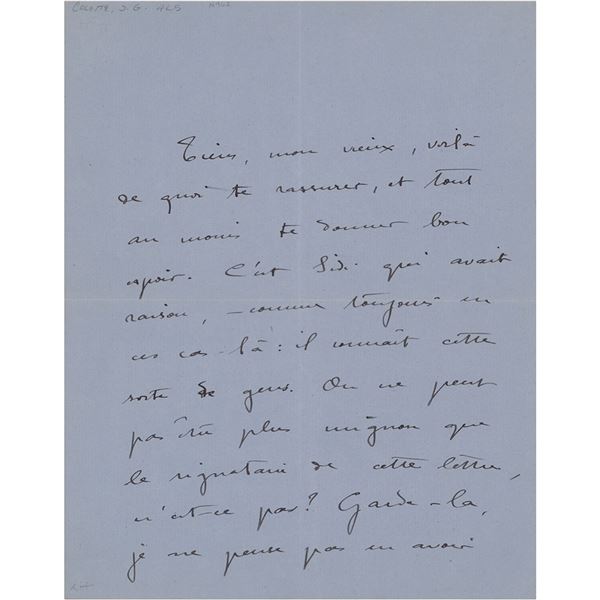 COLETTE, S.G. ALS
Tiens, mon vieux, voilà
de quoi te rassurer, et tout
au moins te donner bon
espoir. C'est Sidi qui avait
raison, – comme toujours en
ces cas-là : il connaît cette
sorte de gens. On ne peut
pas être plus mignon que
le signataire de cette lettre,
n'est-ce pas? Garde-la,
je ne pense pas en avoir